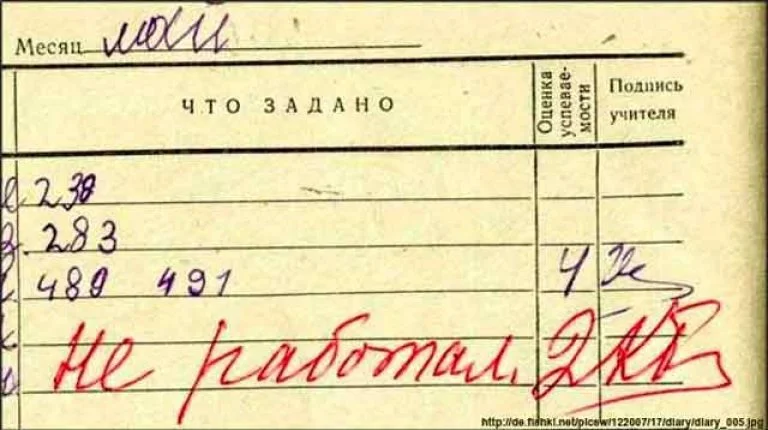 Месяц май
ЧТО ЗАДАНО
Оценка успеваемости
Подпись учителя
238
283
489 491 4
Не работал. 2
http://de.fishki.net/picsw/122007/17/diary/diary_005.jpg